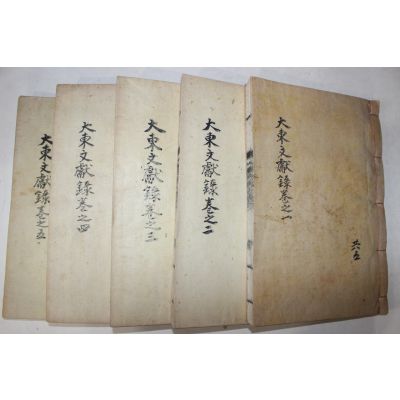 大東文獻錄卷之一
共五
大東文獻錄卷之二
大東文獻錄卷之三
大東文獻錄卷之四
大東文獻錄卷之五